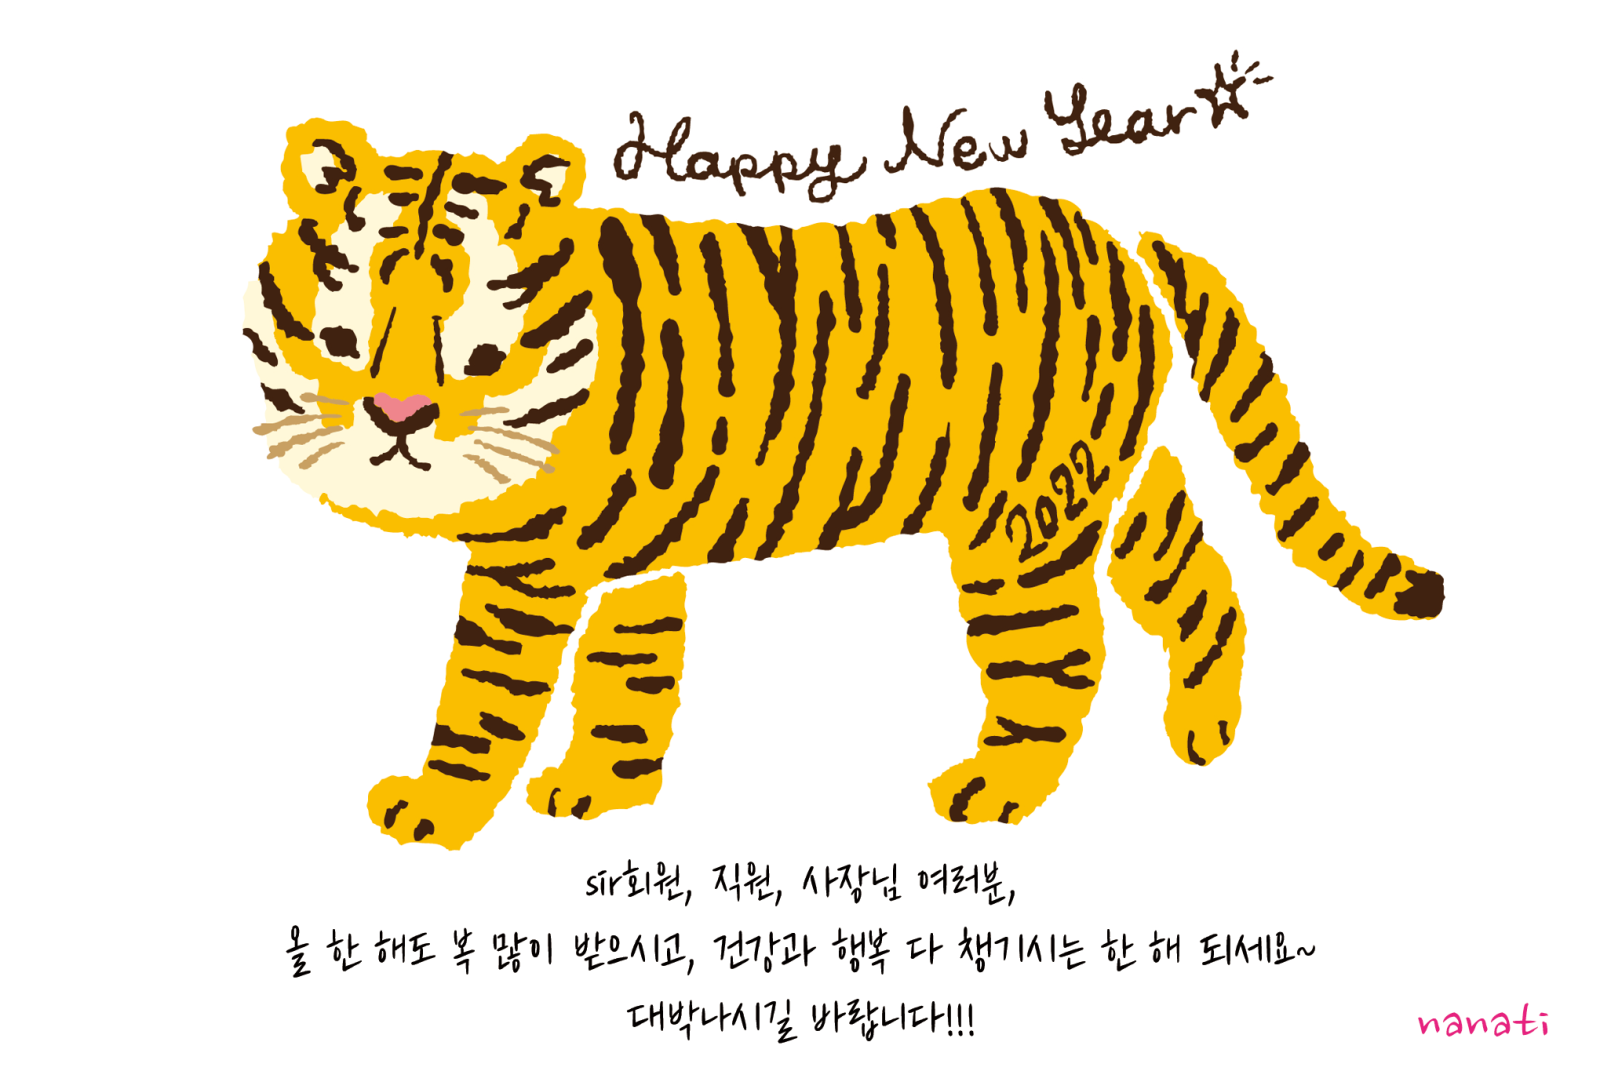 Happy New Year☆
2022
sir회원, 직원, 사장님 여러분,
올 한 해도 복 많이 받으시고, 건강과 행복 다 챙기시는 한 해 되세요~
대박나시길 바랍니다!!!
nanati